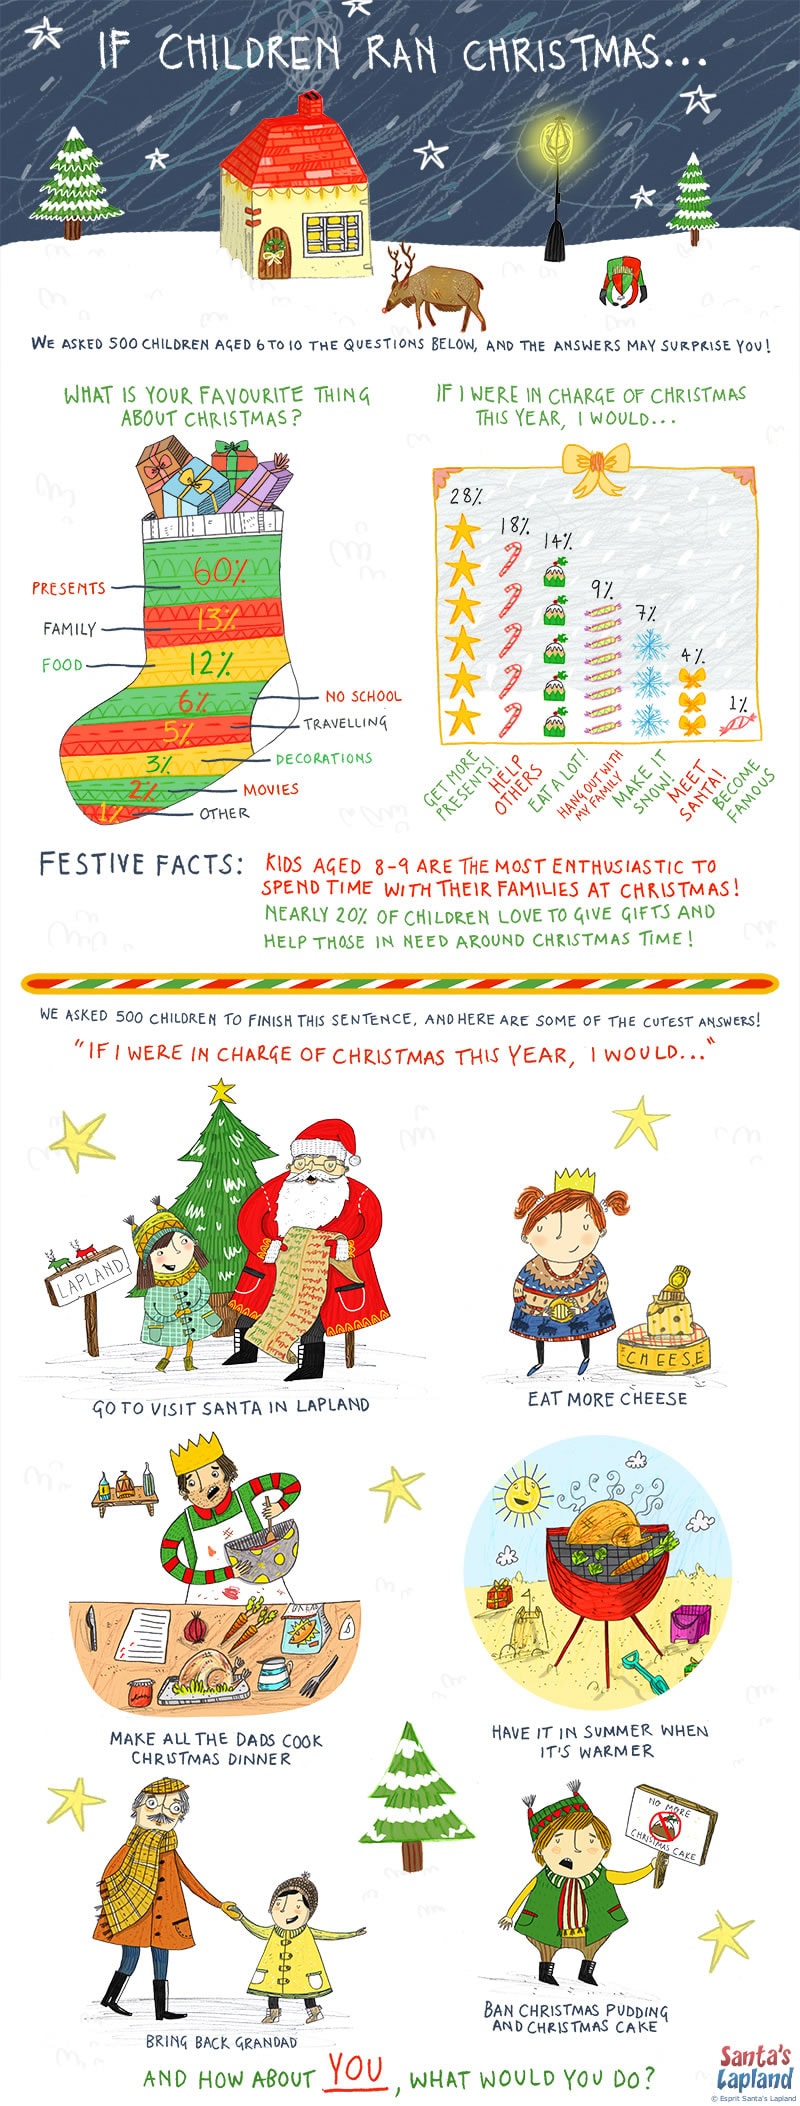 IF CHILDREN RAN CHRISTMAS...
WE ASKED 500 CHILDREN AGED 6 TO 10 THE QUESTIONS BELOW, AND THE ANSWERS MAY SURPRISE YOU!
WHAT IS YOUR FAVOURITE THING
ABOUT CHRISTMAS?
60%
PRESENTS
13%
FAMILY
12%
FOOD
6%
NO SCHOOL
5%
TRAVELLING
3%
DECORATIONS
2%
MOVIES
1%
OTHER
IF I WERE IN CHARGE OF CHRISTMAS
THIS YEAR, I WOULD...
28%
18%
14%
9%
7%
4%
1%
GET MORE
PRESENTS!
HELP
OTHERS
EAT A LOT!
HANG OUT WITH
MY FAMILY
MAKE IT
SNOW!
MEET
SANTA!
BECOME
FAMOUS
FESTIVE FACTS:
KIDS AGED 8-9 ARE THE MOST ENTHUSIASTIC TO
SPEND TIME WITH THEIR FAMILIES AT CHRISTMAS!
NEARLY 20% OF CHILDREN LOVE TO GIVE GIFTS AND
HELP THOSE IN NEED AROUND CHRISTMAS TIME!
WE ASKED 500 CHILDREN TO FINISH THIS SENTENCE, AND HERE ARE SOME OF THE CUTEST ANSWERS!
"IF I WERE IN CHARGE OF CHRISTMAS THIS YEAR, I WOULD..."
LAPLAND
GO TO VISIT SANTA IN LAPLAND
CHEESE
EAT MORE CHEESE
MAKE ALL THE DADS COOK
CHRISTMAS DINNER
HAVE IT IN SUMMER WHEN
IT'S WARMER
BRING BACK GRANDAD
NO MORE
CHRISTMAS CAKE
BAN CHRISTMAS PUDDING
AND CHRISTMAS CAKE
AND HOW ABOUT YOU, WHAT WOULD YOU DO?
Santa's
Lapland
© Esprit Santa's Lapland